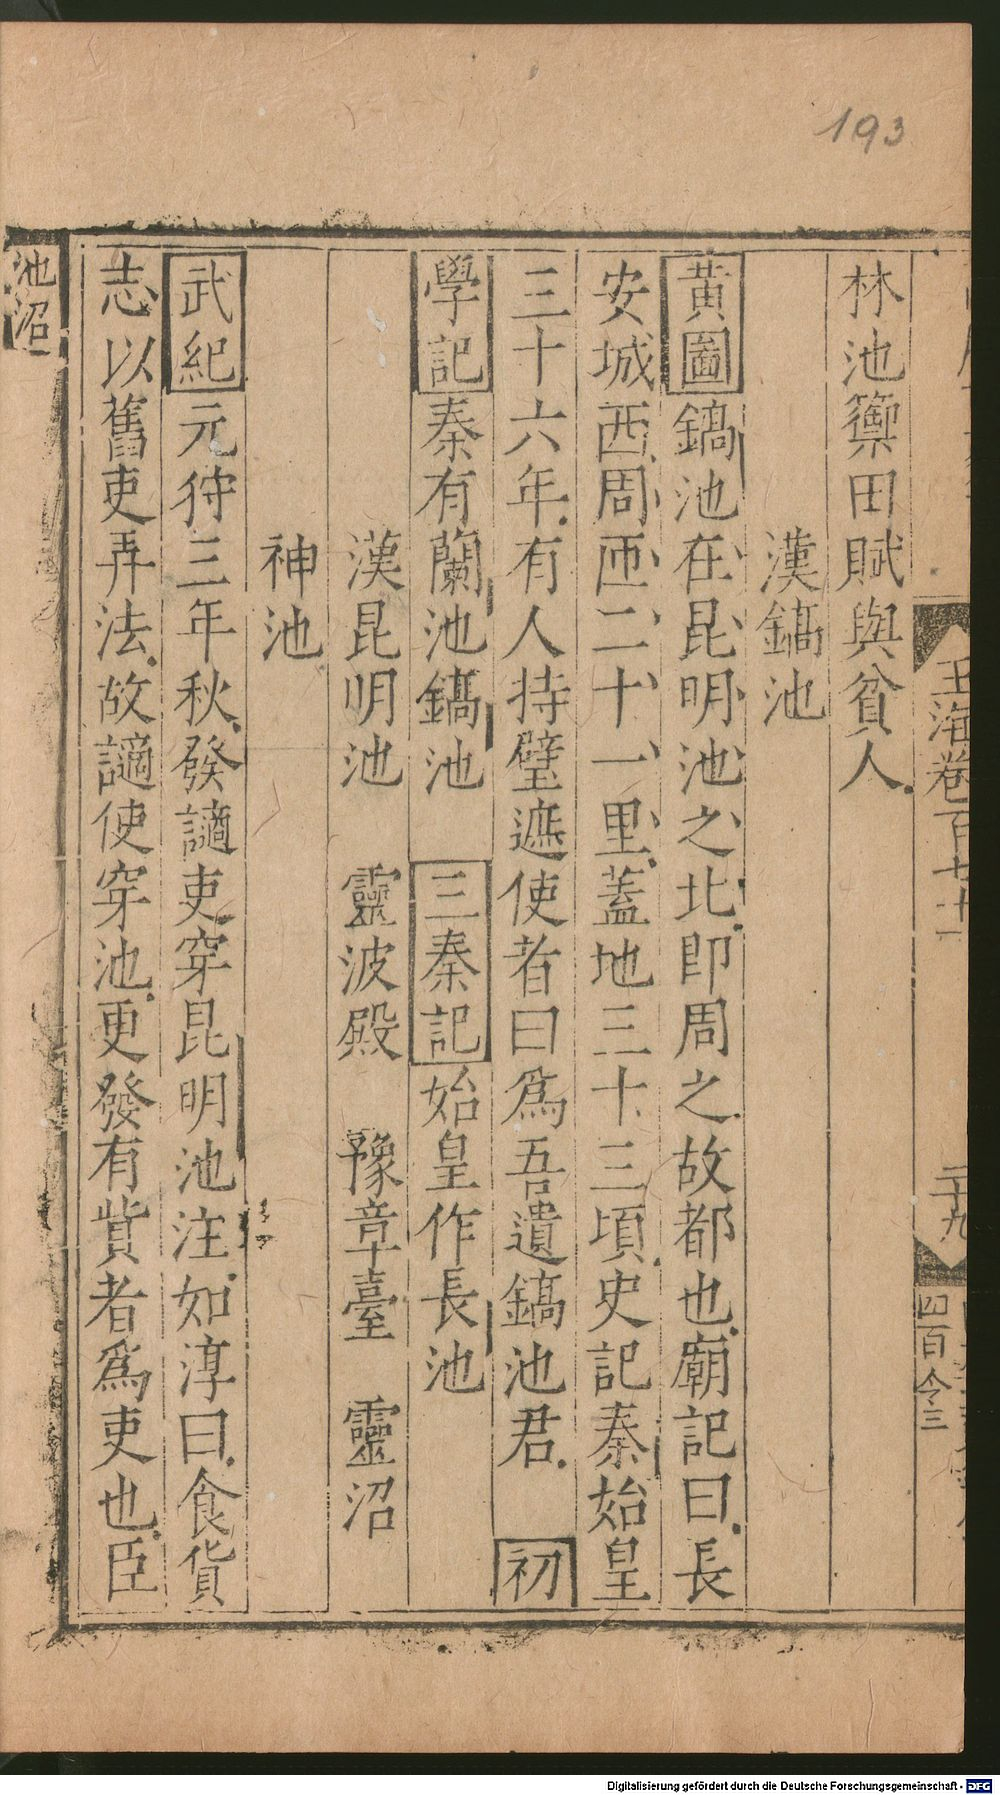 193
玉海卷百七十一
二十九
四百令三
林池籞田賦與貧人
漢鎬池
黃圖鎬池在昆明池之北即周之故都也廟記曰長
安城西周匝二十一里蓋地三十三頃史記秦始皇
三十六年有人持璧遮使者曰爲吾遺鎬池君 初
學記秦有蘭池鎬池 三秦記始皇作長池
漢昆明池 靈波殿 豫章臺 靈沼
神池
武紀元狩三年秋發謫吏穿昆明池注如淳曰食貨
志以舊吏弄法故謫使穿池更發有貲者爲吏也臣
池沼
Digitalisierung gefördert durch die Deutsche Forschungsgemeinschaft - DFG